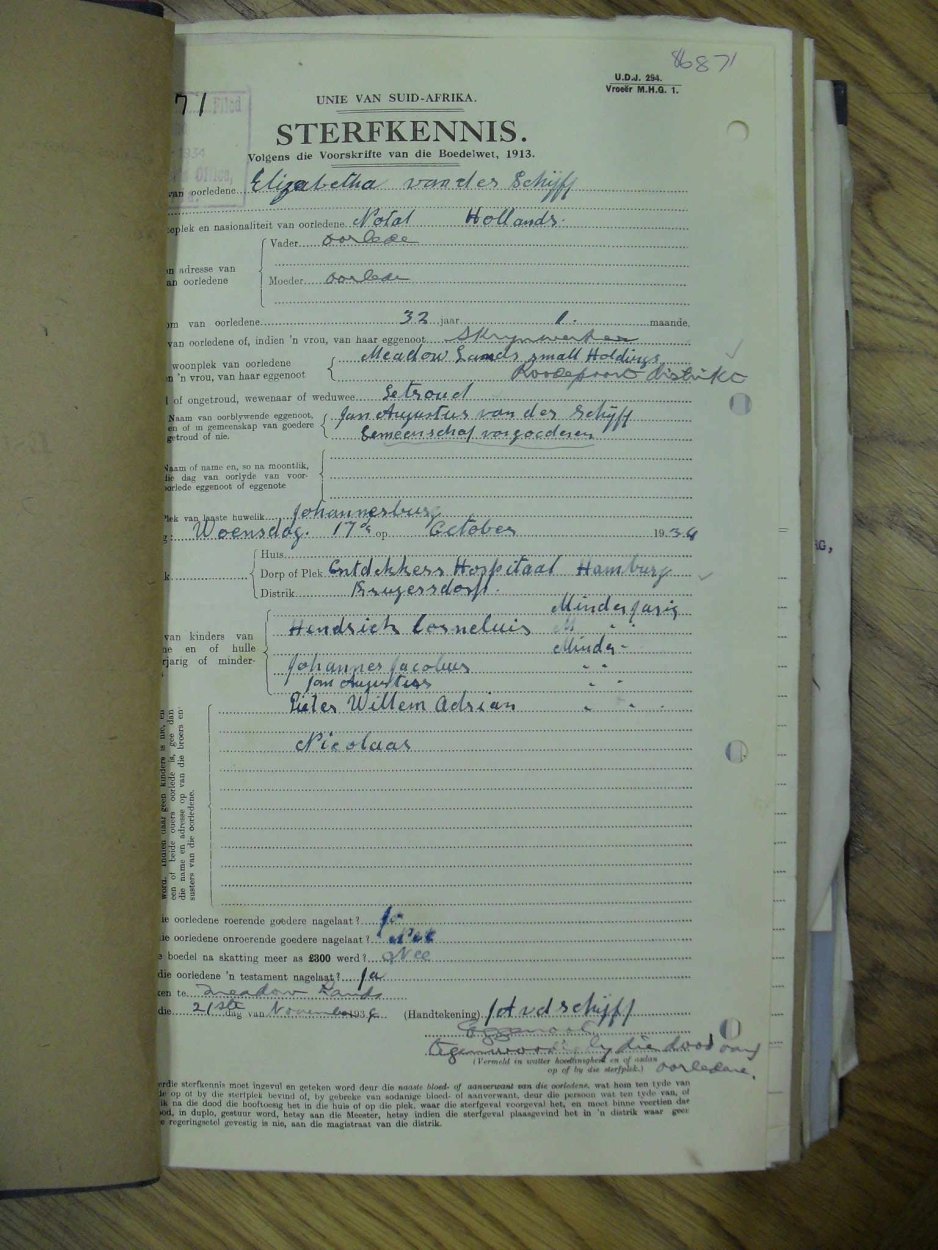 86871
U.D.J. 294.
Vroeër M.H.G. 1.
71
Filed
1934
UNIE VAN SUID-AFRIKA.
STERFKENNIS.
Volgens die Voorskrifte van die Boedelwet, 1913.
van oorledene Elizabetha van der Schijff
plek en nasionaliteit van oorledene Notal Hollands.
Vader oorlede
n adresse van
an oorledene
Moeder oorlede
om van oorledene 32 jaar 1. maande.
van oorledene of, indien 'n vrou, van haar eggenoot Skrynwerker
woonplek van oorledene Meadow Lands small Holdings
en 'n vrou, van haar eggenoot Roodepoort distrikt
of ongetroud, wewenaar of weduwee Getroud
Naam van oorblywende eggenoot, Jan Augustus van der Schijff
en of in gemeenskap van goedere
getroud of nie. Gemeenschaf van goederen
Naam of name en, so na moontlik,
die dag van oorlyde van voor-
oorlede eggenoot of eggenote
Plek van laaste huwelik Johannesburg
g: Woensdag. 17de op October 1934
Huis
k Dorp of Plek Ontdekkers Hospitaal Hamburg
Distrik Krugersdorp.
Minderjarig
van kinders van Hendrich Corneluis M " "
ne en of hulle Minder "
rjarig of minder- Johannes Jacobus " "
Jan Augustus " "
Pieter Willem Adrian " " "
Nicolaas
word. Indien daar geen kinders is nie, en
een of beide ouers oorlede is, gee dan
die name en adresse op van die broers en
susters van die oorledene.
ie oorledene roerende goedere nagelaat? Ja
ie oorledene onroerende goedere nagelaat? Nee
e boedel na skatting meer as £300 werd? Nee
die oorledene 'n testament nagelaat? Ja
ken te Meadow Lands
die 21ste dag van November 1934 (Handtekening) JAvdSchijff
Eggenoot
tegenwoordig by die dood van
(Vermeld in watter hoedanigheid en of aldan
op of by die sterfplek.) oorledene.
erdie sterfkennis moet ingevul en geteken word deur die naaste bloed- of aanverwant van die oorledene, wat hom ten tyde van
de op of by die sterfplek bevind of, by gebreke van sodanige bloed- of aanverwant, deur die persoon wat ten tyde van, of
ik na die dood die hooftoesig het in die huis of op die plek, waar die sterfgeval voorgeval het, en moet binne veertien dae
ood, in duplo, gestuur word, hetsy aan die Meester, hetsy indien die sterfgeval plaasgevind het in 'n distrik waar geen
e regeringsetel gevestig is nie, aan die magistraat van die distrik.